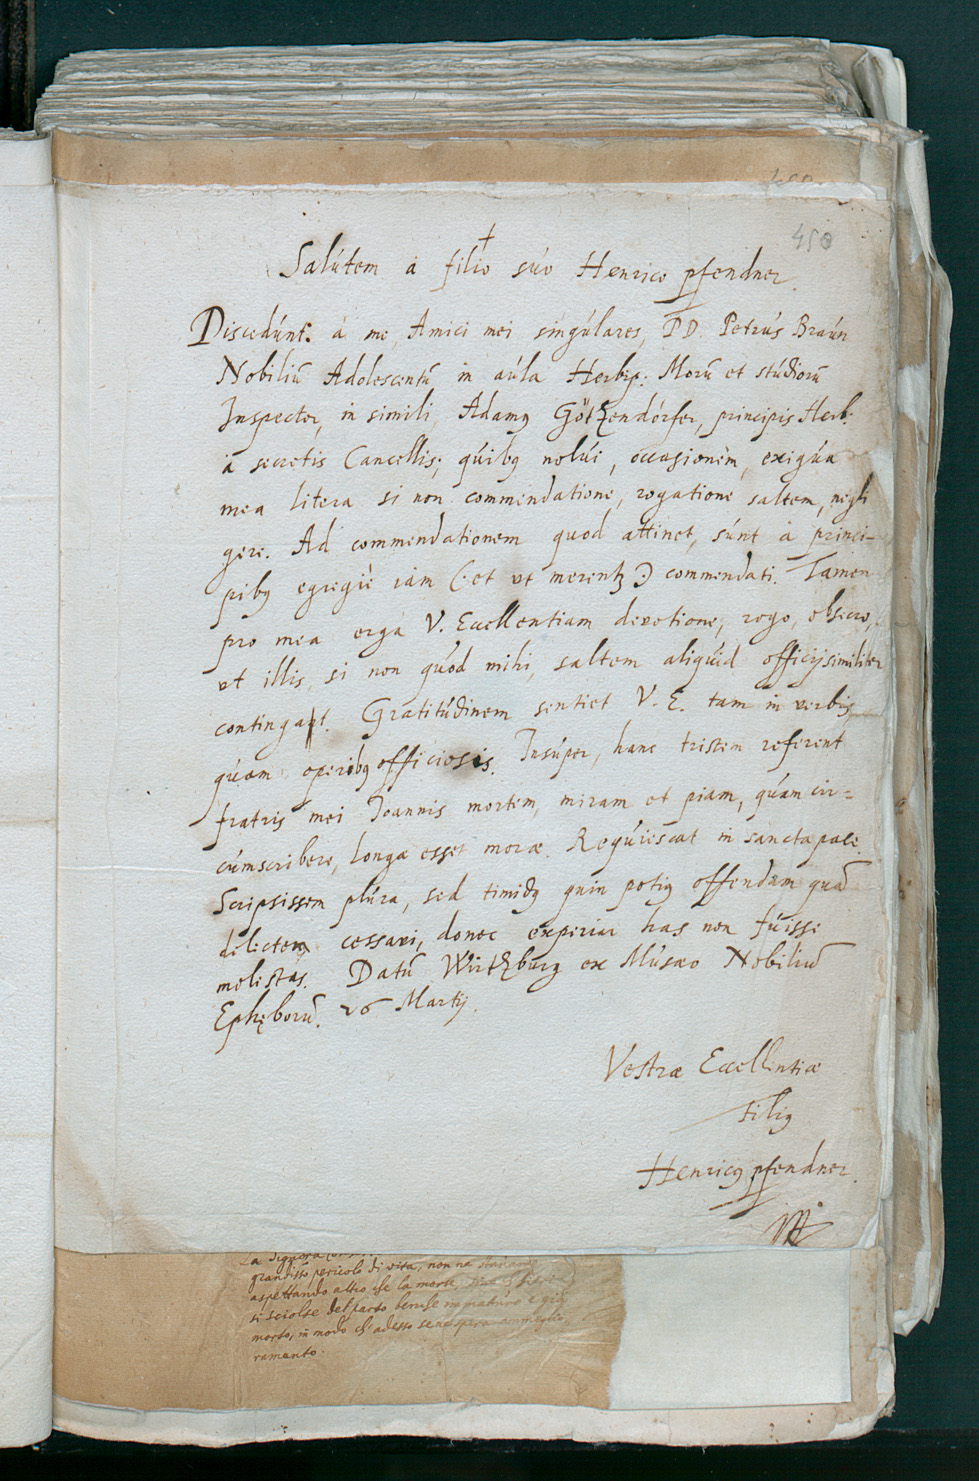 450
+
Salutem à filio suo Henrico Pfendner.
Discedunt à me, Amici mei singulares, PD. Petrus Braun
Nobiliū Adolescentū in aula Herbip: Morū et studiorū
Inspector, in simili, Adamꝰ Götzendorfer, principis Herb:
à secretis Cancellis; quibꝰ nolui, occasionem, exigua
mea litera si non commendatione, rogatione saltem, negli
gere. Ad commendationem quod attinet, sunt à princi-
pibꝰ egregiè iam (: et ut merentꝶ :) commendati. Tamen
pro mea erga V. Excellentiam devotione, rogo, obsecro,
ut illis, si non quod mihi, saltem aliquid officij similiter
contingat. Gratitudinem sentiet V. E. tam in verbis
quam operibꝰ officiosis. Insuper, hanc tristem referent
fratris mei Joannis mortem, miram et piam, quam cir=
cumscribere, longæ esset moræ. Requiescat in sancta pace.
Scripsissem plura, sed timidꝰ quin potiꝰ offendam quā
delectem cessavi, donec experiar has non fuisse
molestas. Datū Wirtzburg ex Musæo Nobiliū
Ephęborū. 26 Martij.
Vestræ Excellentiæ
Filiꝰ
Henricꝰ Pfendner.
La Signora
grandissº pericolo di vita, non ne
aspettando altro che la morte,
si sciolse del parto benche immaturo e già
morto, in modo ch' adesso se ne spera miglio
ramento.